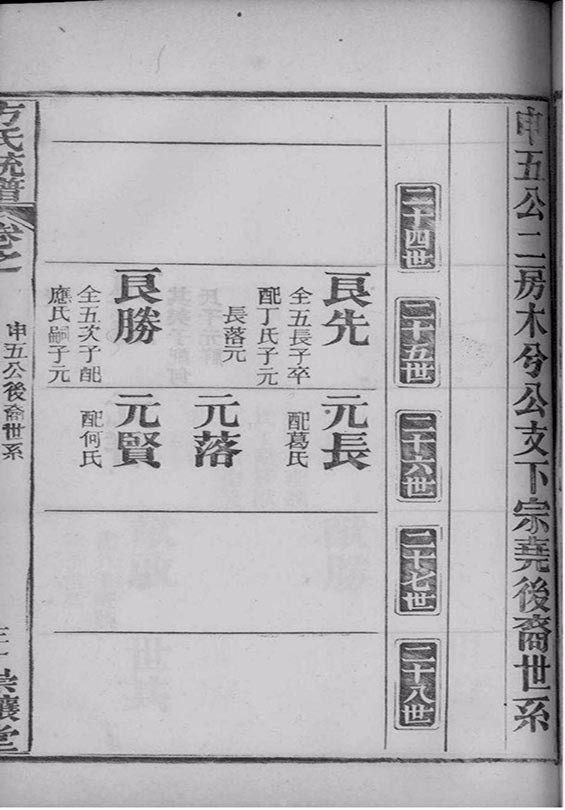 申五公二房木兮公支下宗堯後裔世系
二十四世
二十五世
二十六世
二十七世
二十八世
良先
全五長子卒
配丁氏子元
長落元
良勝
全五次子配
應氏嗣子元
元長
配葛氏
元落
元賢
配何氏
方氏統譜
卷之
申五公後裔世系